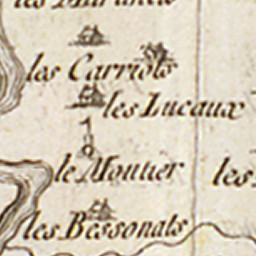 les Carriols
les Lucaux
le Moutier
les
les Bessonats